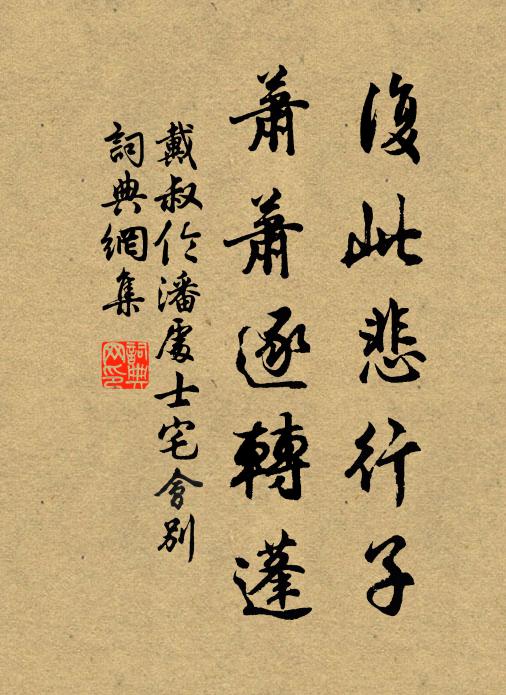 復此悲行子
蕭蕭逐轉蓬
戴叔伦潘處士宅會別
詞典網集
詞典网印